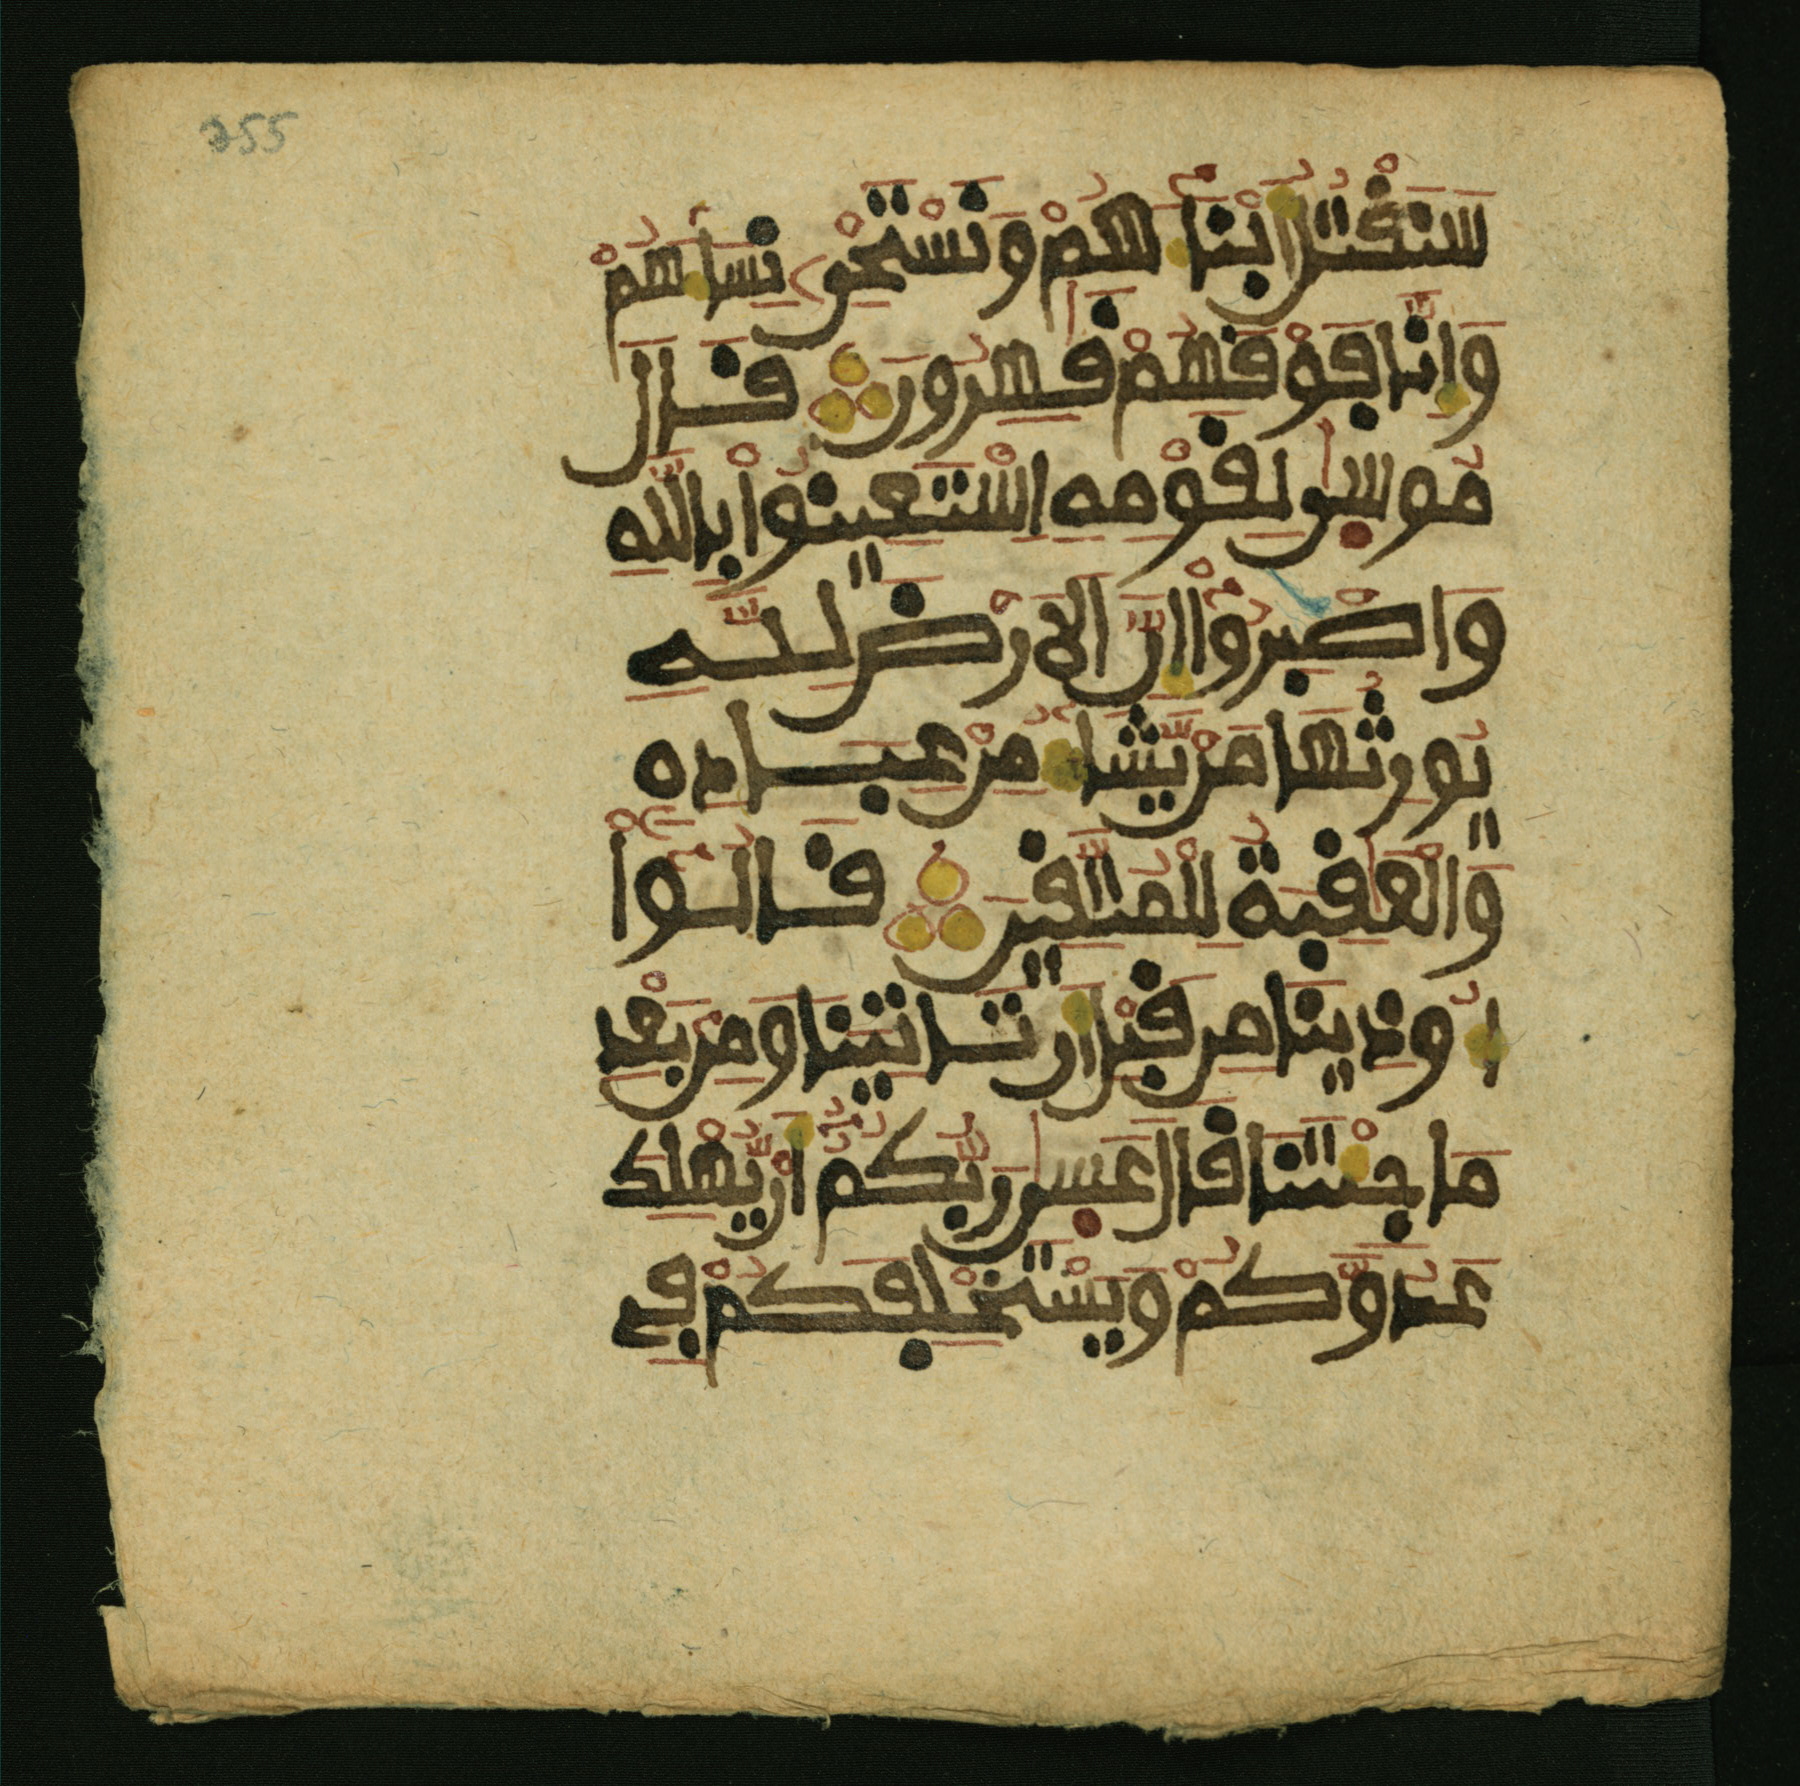 255
سَنَقْتُلُ أَبْنَاءَهُمْ وَنَسْتَحْيِ نِسَاءَهُمْ
وَإِنَّا فَوْقَهُمْ قَٰهِرُونَ قَالَ
مُوسَىٰ لِقَوْمِهِ اِسْتَعِينُوا بِاللَّهِ
وَاصْبِرُوا إِنَّ الْأَرْضَ لِلَّهِ
يُورِثُهَا مَنْ يَّشَاءُ مِنْ عِبَادِهِ
وَالْعَٰقِبَةُ لِلْمُتَّقِينَ قَالُوا
أُوذِينَا مِن قَبْلِ أَن تَاتِينَا وَمِنْ بَعْدِ
مَا جِئْتَنَا قَالَ عَسَىٰ رَبُّكُمُ أَنْ يُّهْلِكَ
عَدُوَّكُمْ وَيَسْتَخْلِفَكُمْ فِي